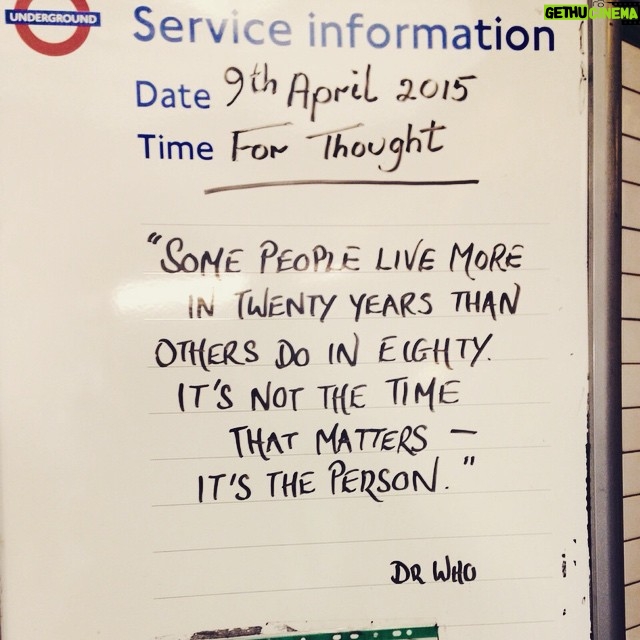 GETHU CINEMA
UNDERGROUND
Service information
Date 9th April 2015
Time For Thought
"SOME PEOPLE LIVE MORE
IN TWENTY YEARS THAN
OTHERS DO IN EIGHTY.
IT'S NOT THE TIME
THAT MATTERS —
IT'S THE PERSON."
DR WHO